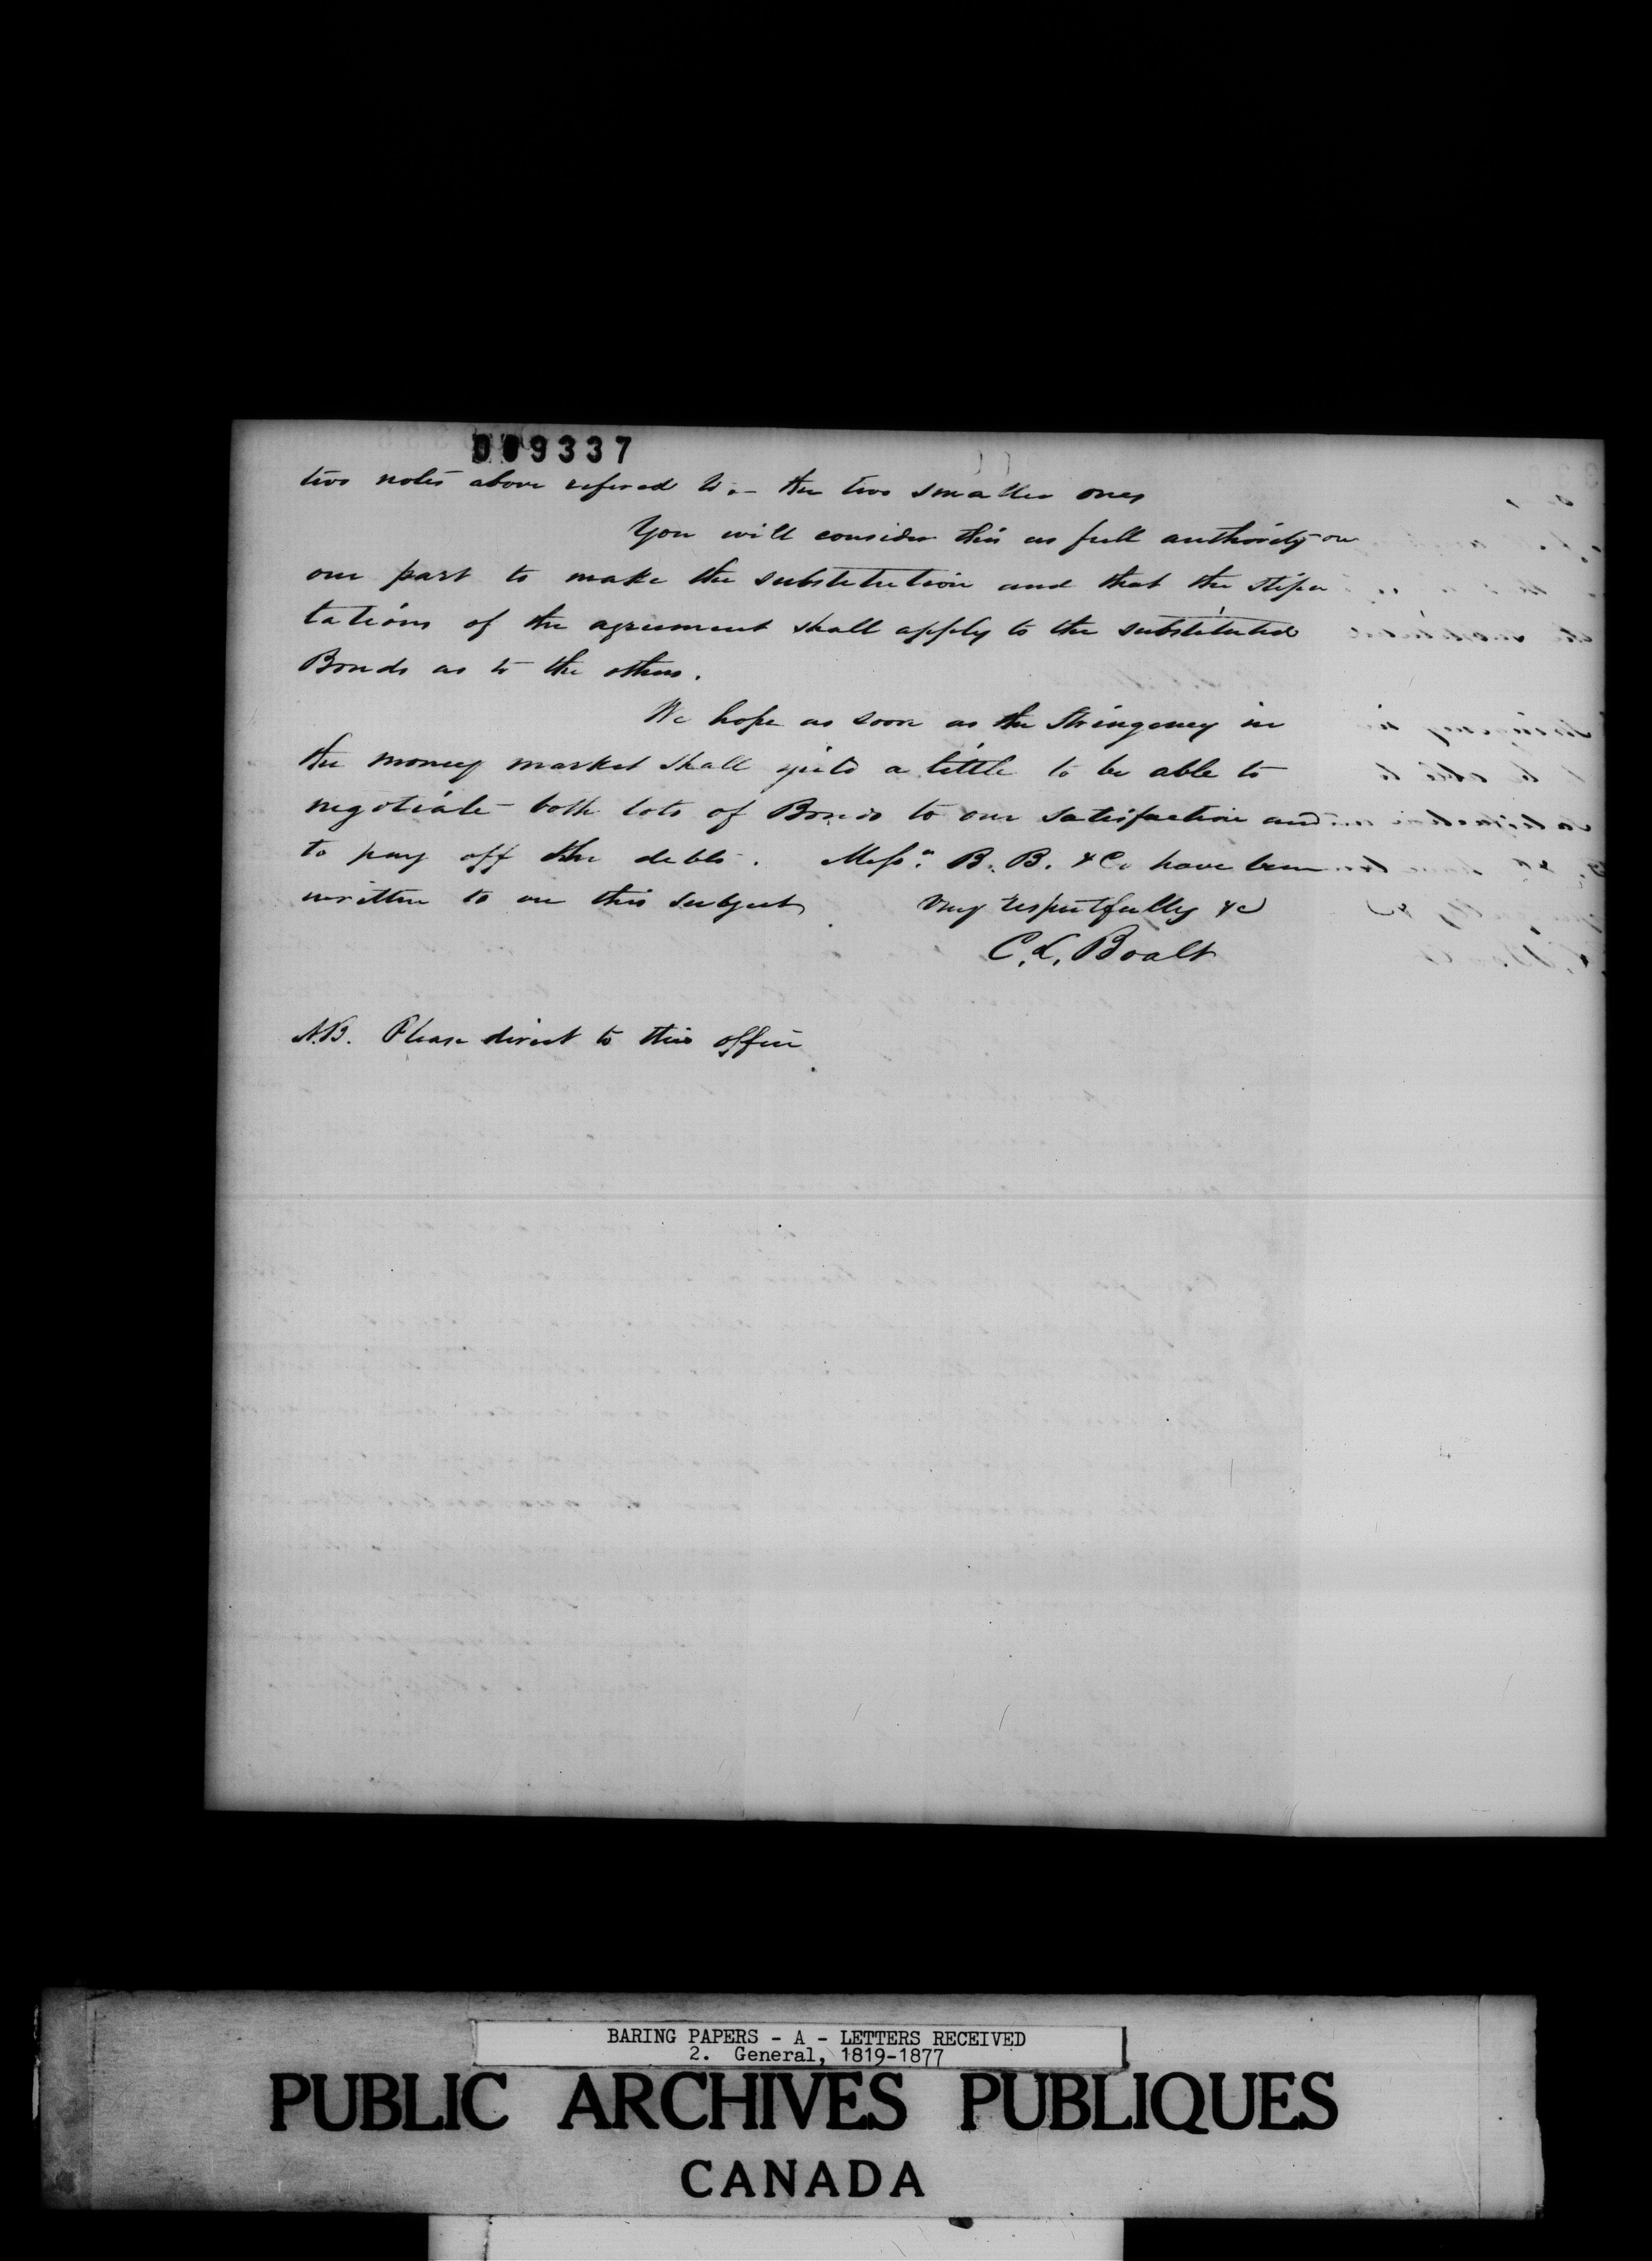 009337
two notes above refered to - the two smaller ones
You will consider this as full authority on
our part to make the substitution and that the stipu
tations of the agreement shall apply to the substituted
Bonds as to the others.
We hope as soon as the stringency in
the money market shall yield a little to be able to
negotiate both lots of Bonds to our satisfaction and
to pay off the debts. Mess.rs B. B. & Co have been
written to on this subject.
Very respectfully &c
C. L. Boalt
N.B. Please direct to this office.
BARING PAPERS - A - LETTERS RECEIVED
2. General, 1819-1877
PUBLIC ARCHIVES PUBLIQUES
CANADA